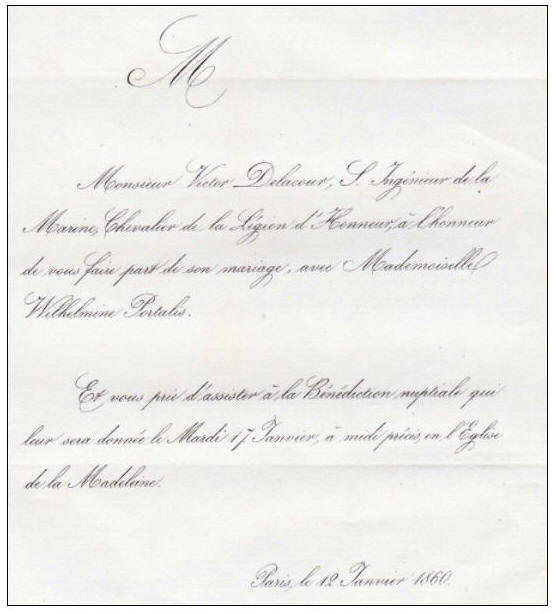 M
Monsieur Victor Delacour, S. Ingénieur de la
Marine, Chevalier de la Légion d'Honneur, à l'honneur
de vous faire part de son mariage, avec Mademoiselle
Wilhelmine Portalis.
Et vous prie d'assister à la Bénédiction nuptiale qui
leur sera donnée le Mardi 17 Janvier, à midi précis, en l'Eglise
de la Madeleine.
Paris, le 12 Janvier 1860.